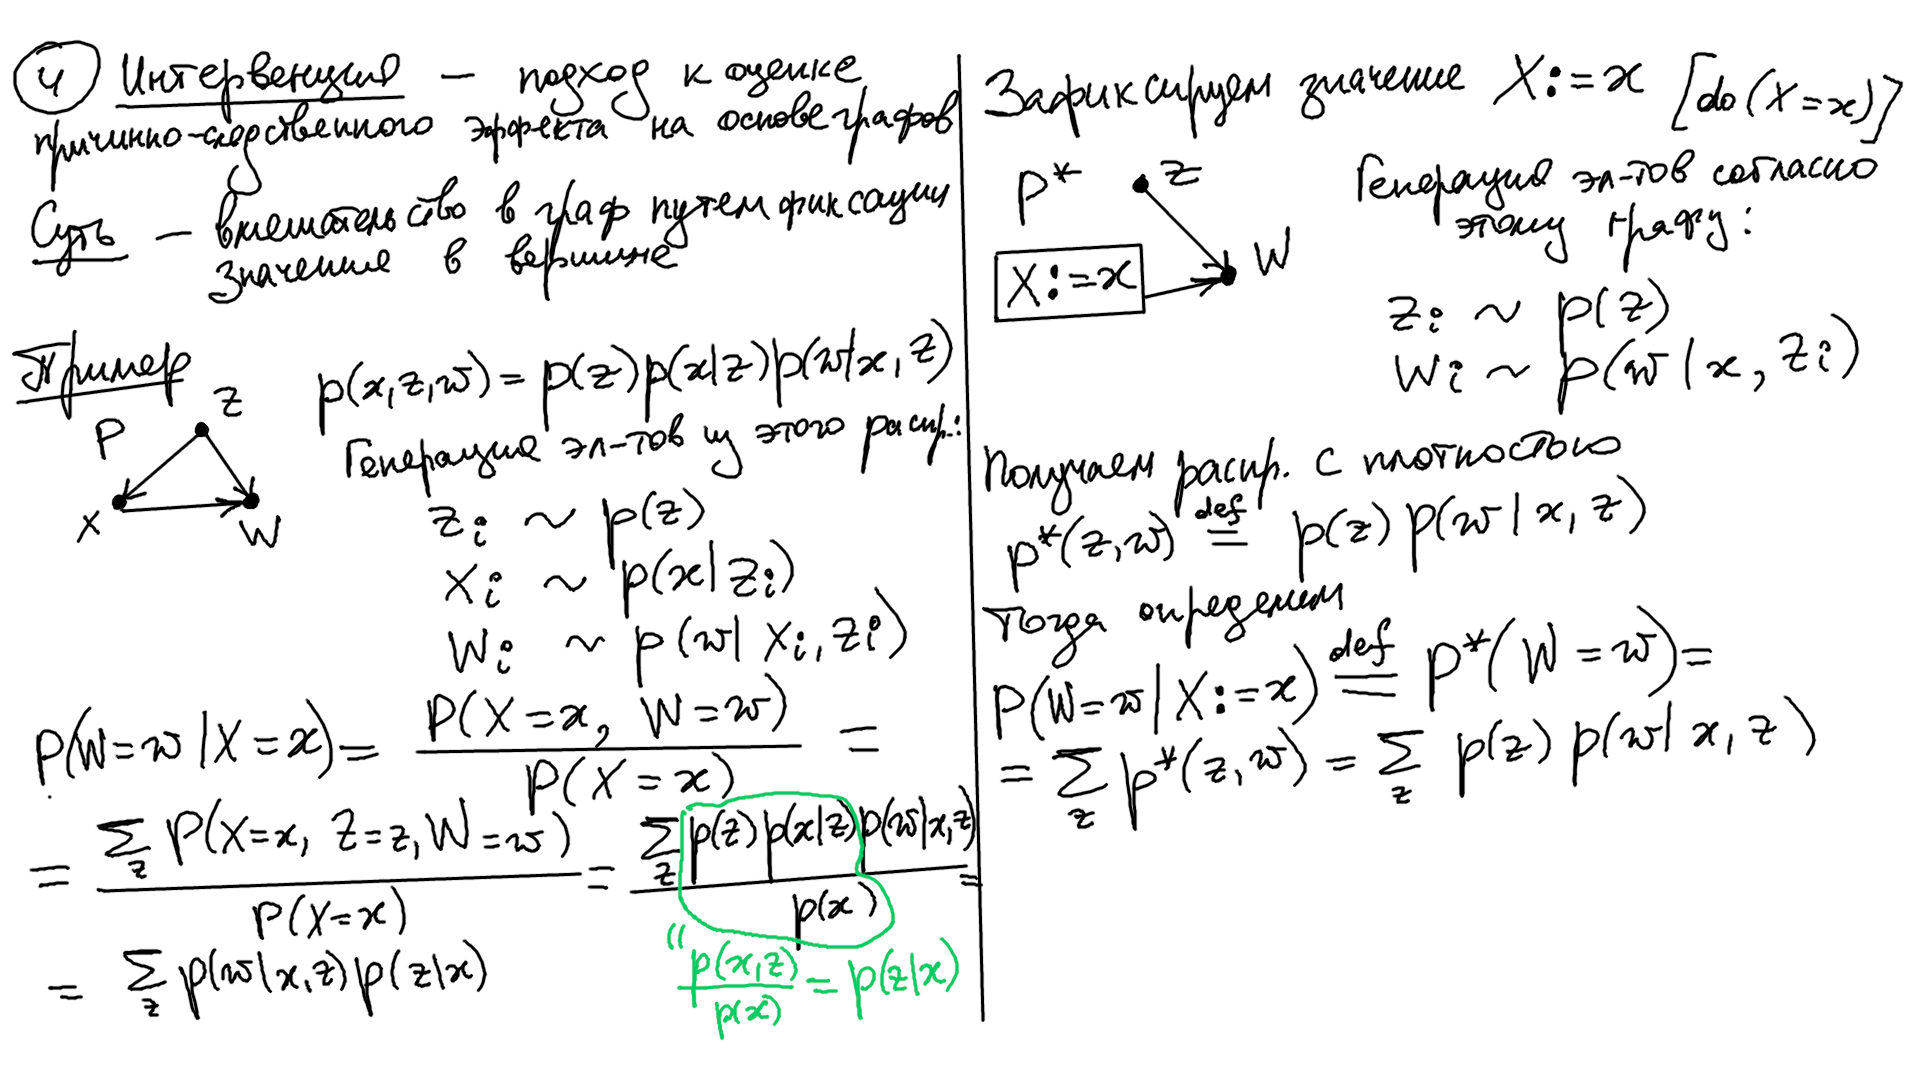 4 Интервенция — подход к оценке
причинно-следственного эффекта на основе графов
Суть — вмешательство в граф путем фиксации
значение в вершине
Пример
p(x,z,w) = p(z)p(x|z)p(w|x,z)
P
Z
X
W
Генерация эл-тов из этого распр.:
z_i ~ p(z)
x_i ~ p(x|z_i)
w_i ~ p(w|x_i,z_i)
P(W=w|X=x) = P(X=x, W=w) / P(X=x) =
= ∑_z P(X=x, Z=z, W=w) / P(X=x) = ∑_z p(z)p(x|z)p(w|x,z) / p(x) =
" p(x,z) / p(x) = p(z|x)
= ∑_z p(w|x,z)p(z|x)
Зафиксируем значение X:=x [do(X=x)]
P*
Z
X:=x
W
Генерация эл-тов согласно
этому графу:
z_i ~ p(z)
w_i ~ p(w|x,z_i)
Получаем распр. с плотностью
p*(z,w) def= p(z)p(w|x,z)
Тогда определим
P(W=w|X:=x) def= P*(W=w) =
= ∑_z p*(z,w) = ∑_z p(z)p(w|x,z)